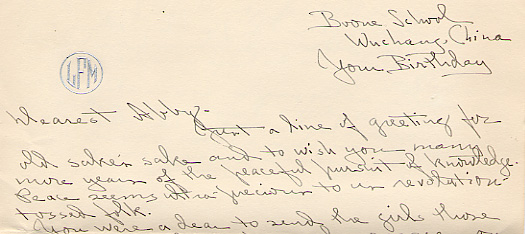 Boone School
Wuchang, China
Your Birthday
LFM
Dearest Abby-
Just a line of greeting for
old sake's sake and to wish you many
more years of the peaceful pursuit of knowledge.
Peace seems ultra precious to us revolution-
tossed folk.
You were a dear to send the girls those